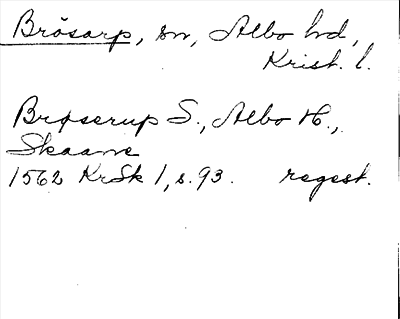 Brösarp, sn, Albo hd,
Krist. l.
Brøserup S., Albo H.,
Skaane
1562 KrSk 1, s. 93. regest.